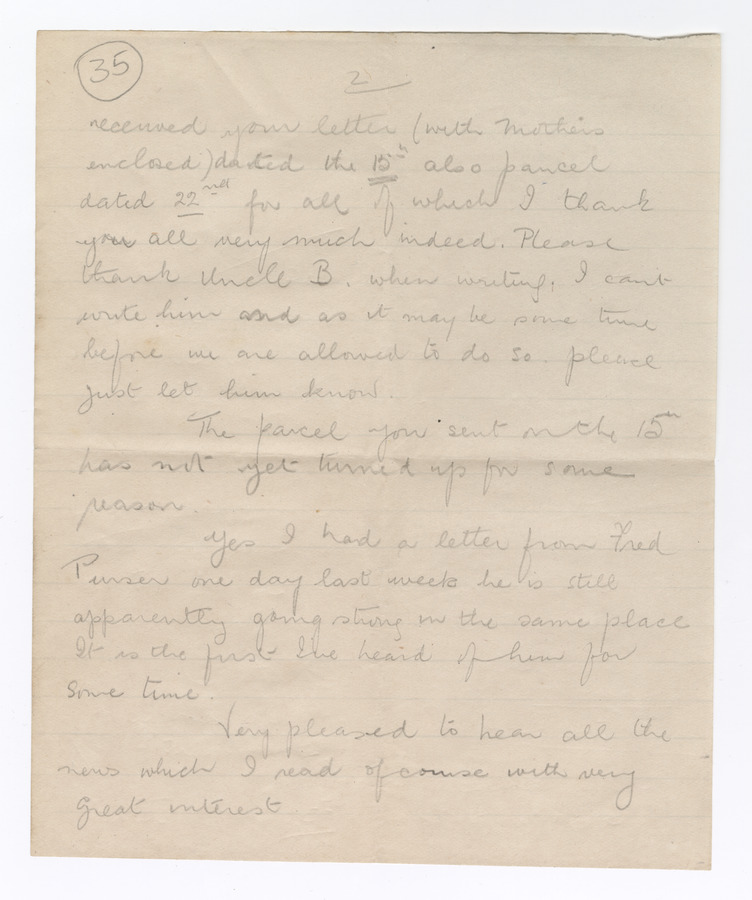 35
2
received your letter (with Mothers
enclosed) dated the 15th also parcel
dated 22nd for all of which I thank
you all very much indeed. Please
thank Uncle B. when writing, I cant
write him and as it may be some time
before we are allowed to do so. please
just let him know.
The parcel you sent on the 15th
has not yet turned up for some
reason.
Yes I had a letter from Fred
Purser one day last week he is still
apparently going strong in the same place
It is the first I've heard of him for
some time.
Very pleased to hear all the
news which I read of course with very
great interest.